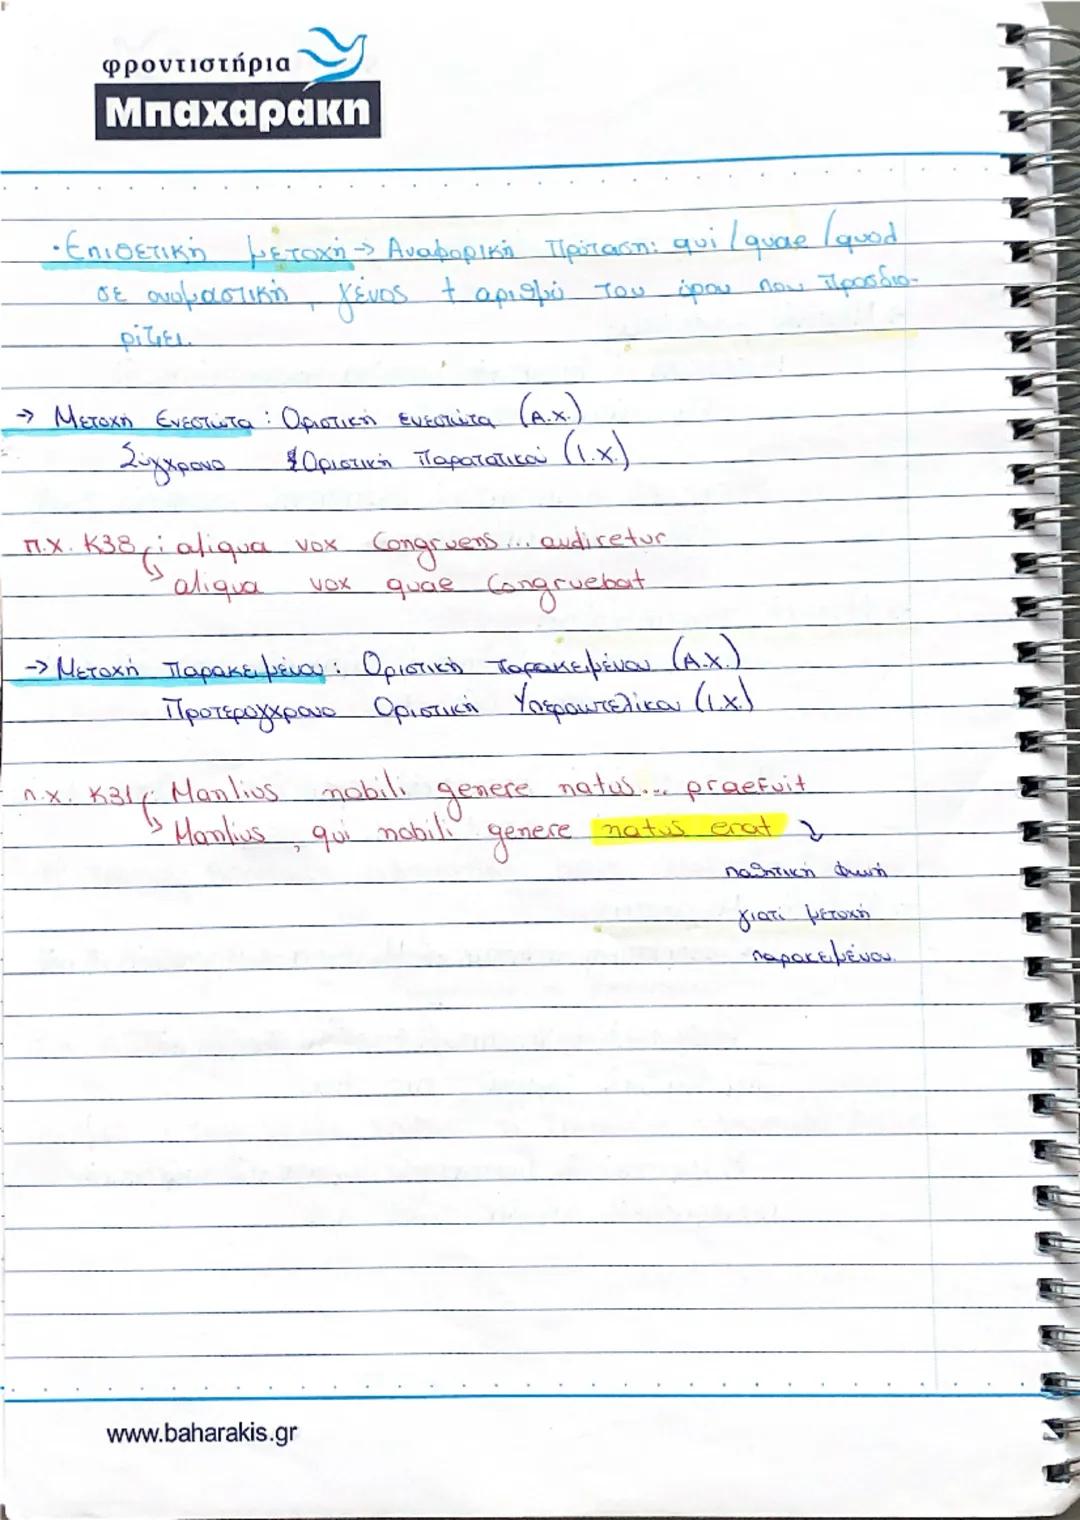 φροντιστήρια
Μπαχαράκη
·Επιθετική μετοχή → Αναφορική Πρόταση: qui / quae / quod
σε ονομαστική, γένος + αριθμό του όρου που προσδιο-
ρίζει.
→ Μετοχή Ενεστώτα : Οριστική ενεστώτα (Α.Χ.)
Σύγχρονο Οριστική Παρατατικού (Ι.Χ.)
π.χ. Κ38 : aliqua vox congruens... audiretur
↳ aliqua vox quae congruebat
→ Μετοχή Παρακειμένου : Οριστική παρακειμένου (Α.Χ.)
Προτερόχρονο Οριστική Υπερσυντελίκου (Ι.Χ.)
π.χ. Κ31 : Manlius nobili genere natus... praefuit
↳ Manlius, qui nobili genere natus erat ↴
παθητική φωνή
γιατί μετοχή
παρακειμένου.
www.baharakis.gr